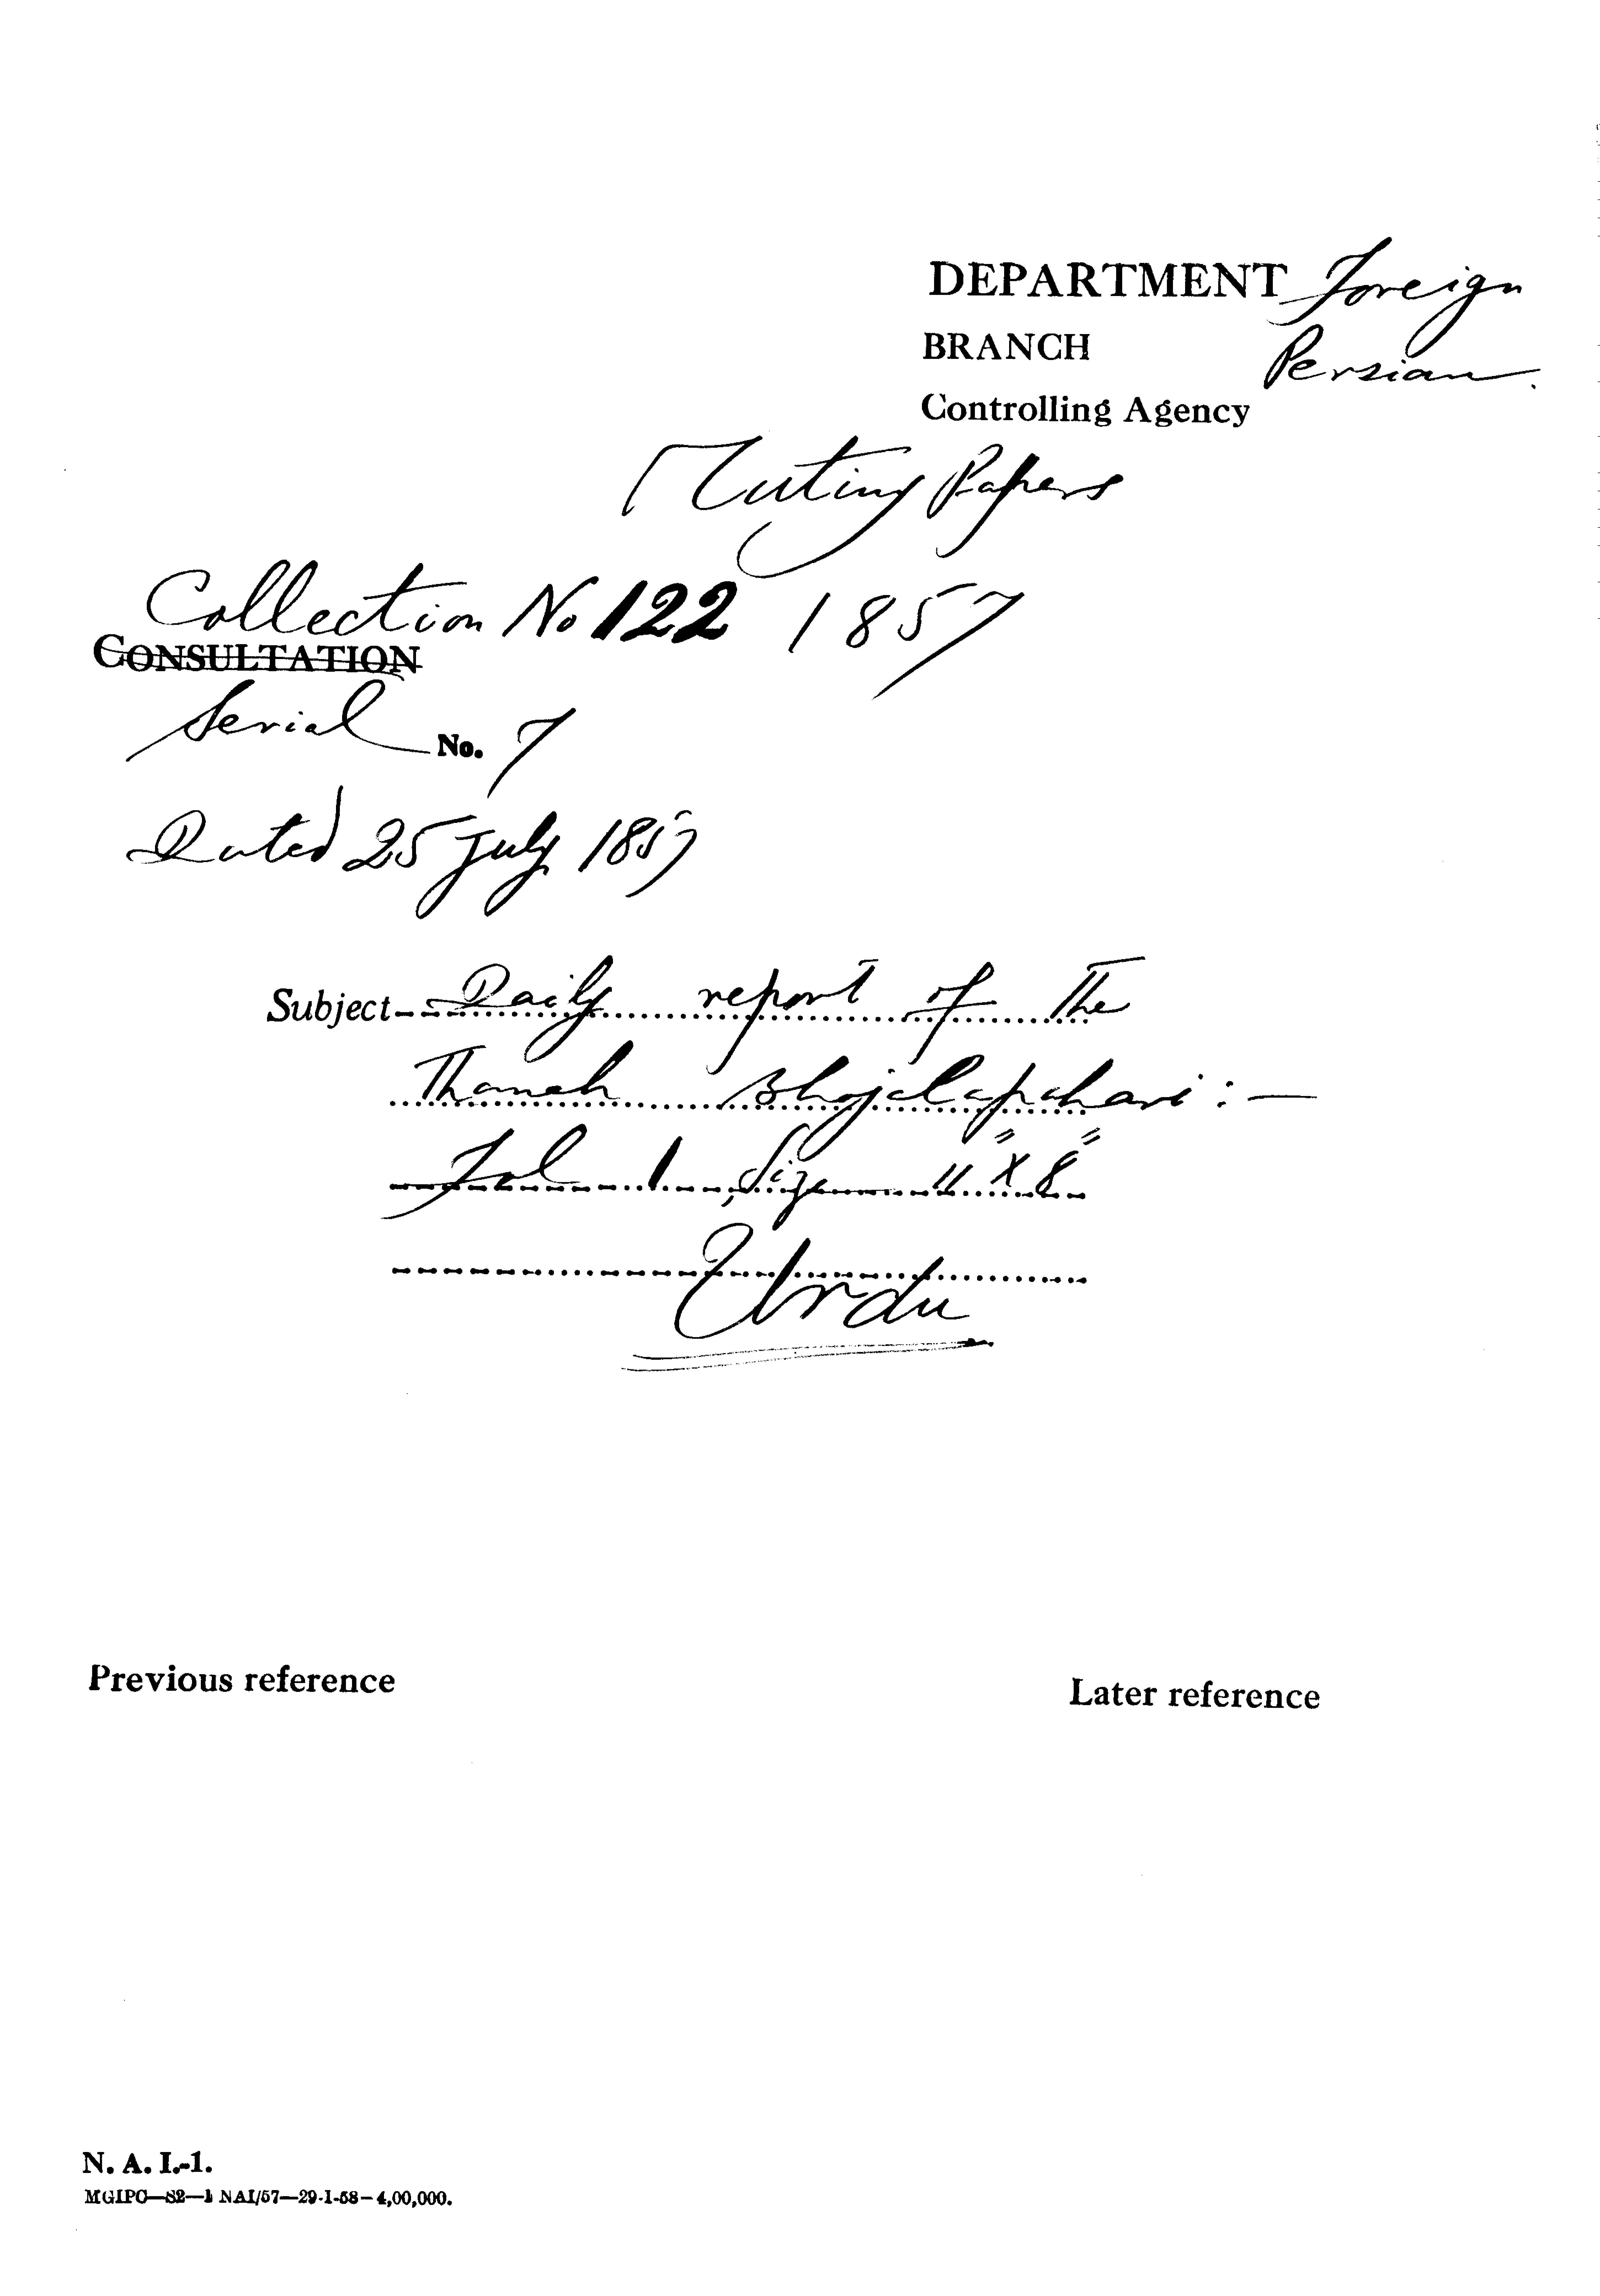 DEPARTMENT Foreign
BRANCH Persian.
Controlling Agency
Mutiny Papers
Collection No 122 1857
CONSULTATION
Serial No. 7
Dated 25 July 1857
Subject Daily report of The
Thanah Bhojelapahari : —
Fol 1, Size 11" X 8"
Urdu
Previous reference
Later reference
N. A. I.-1.
MGIPC—S2—1 NAI/57—29-1-58—4,00,000.